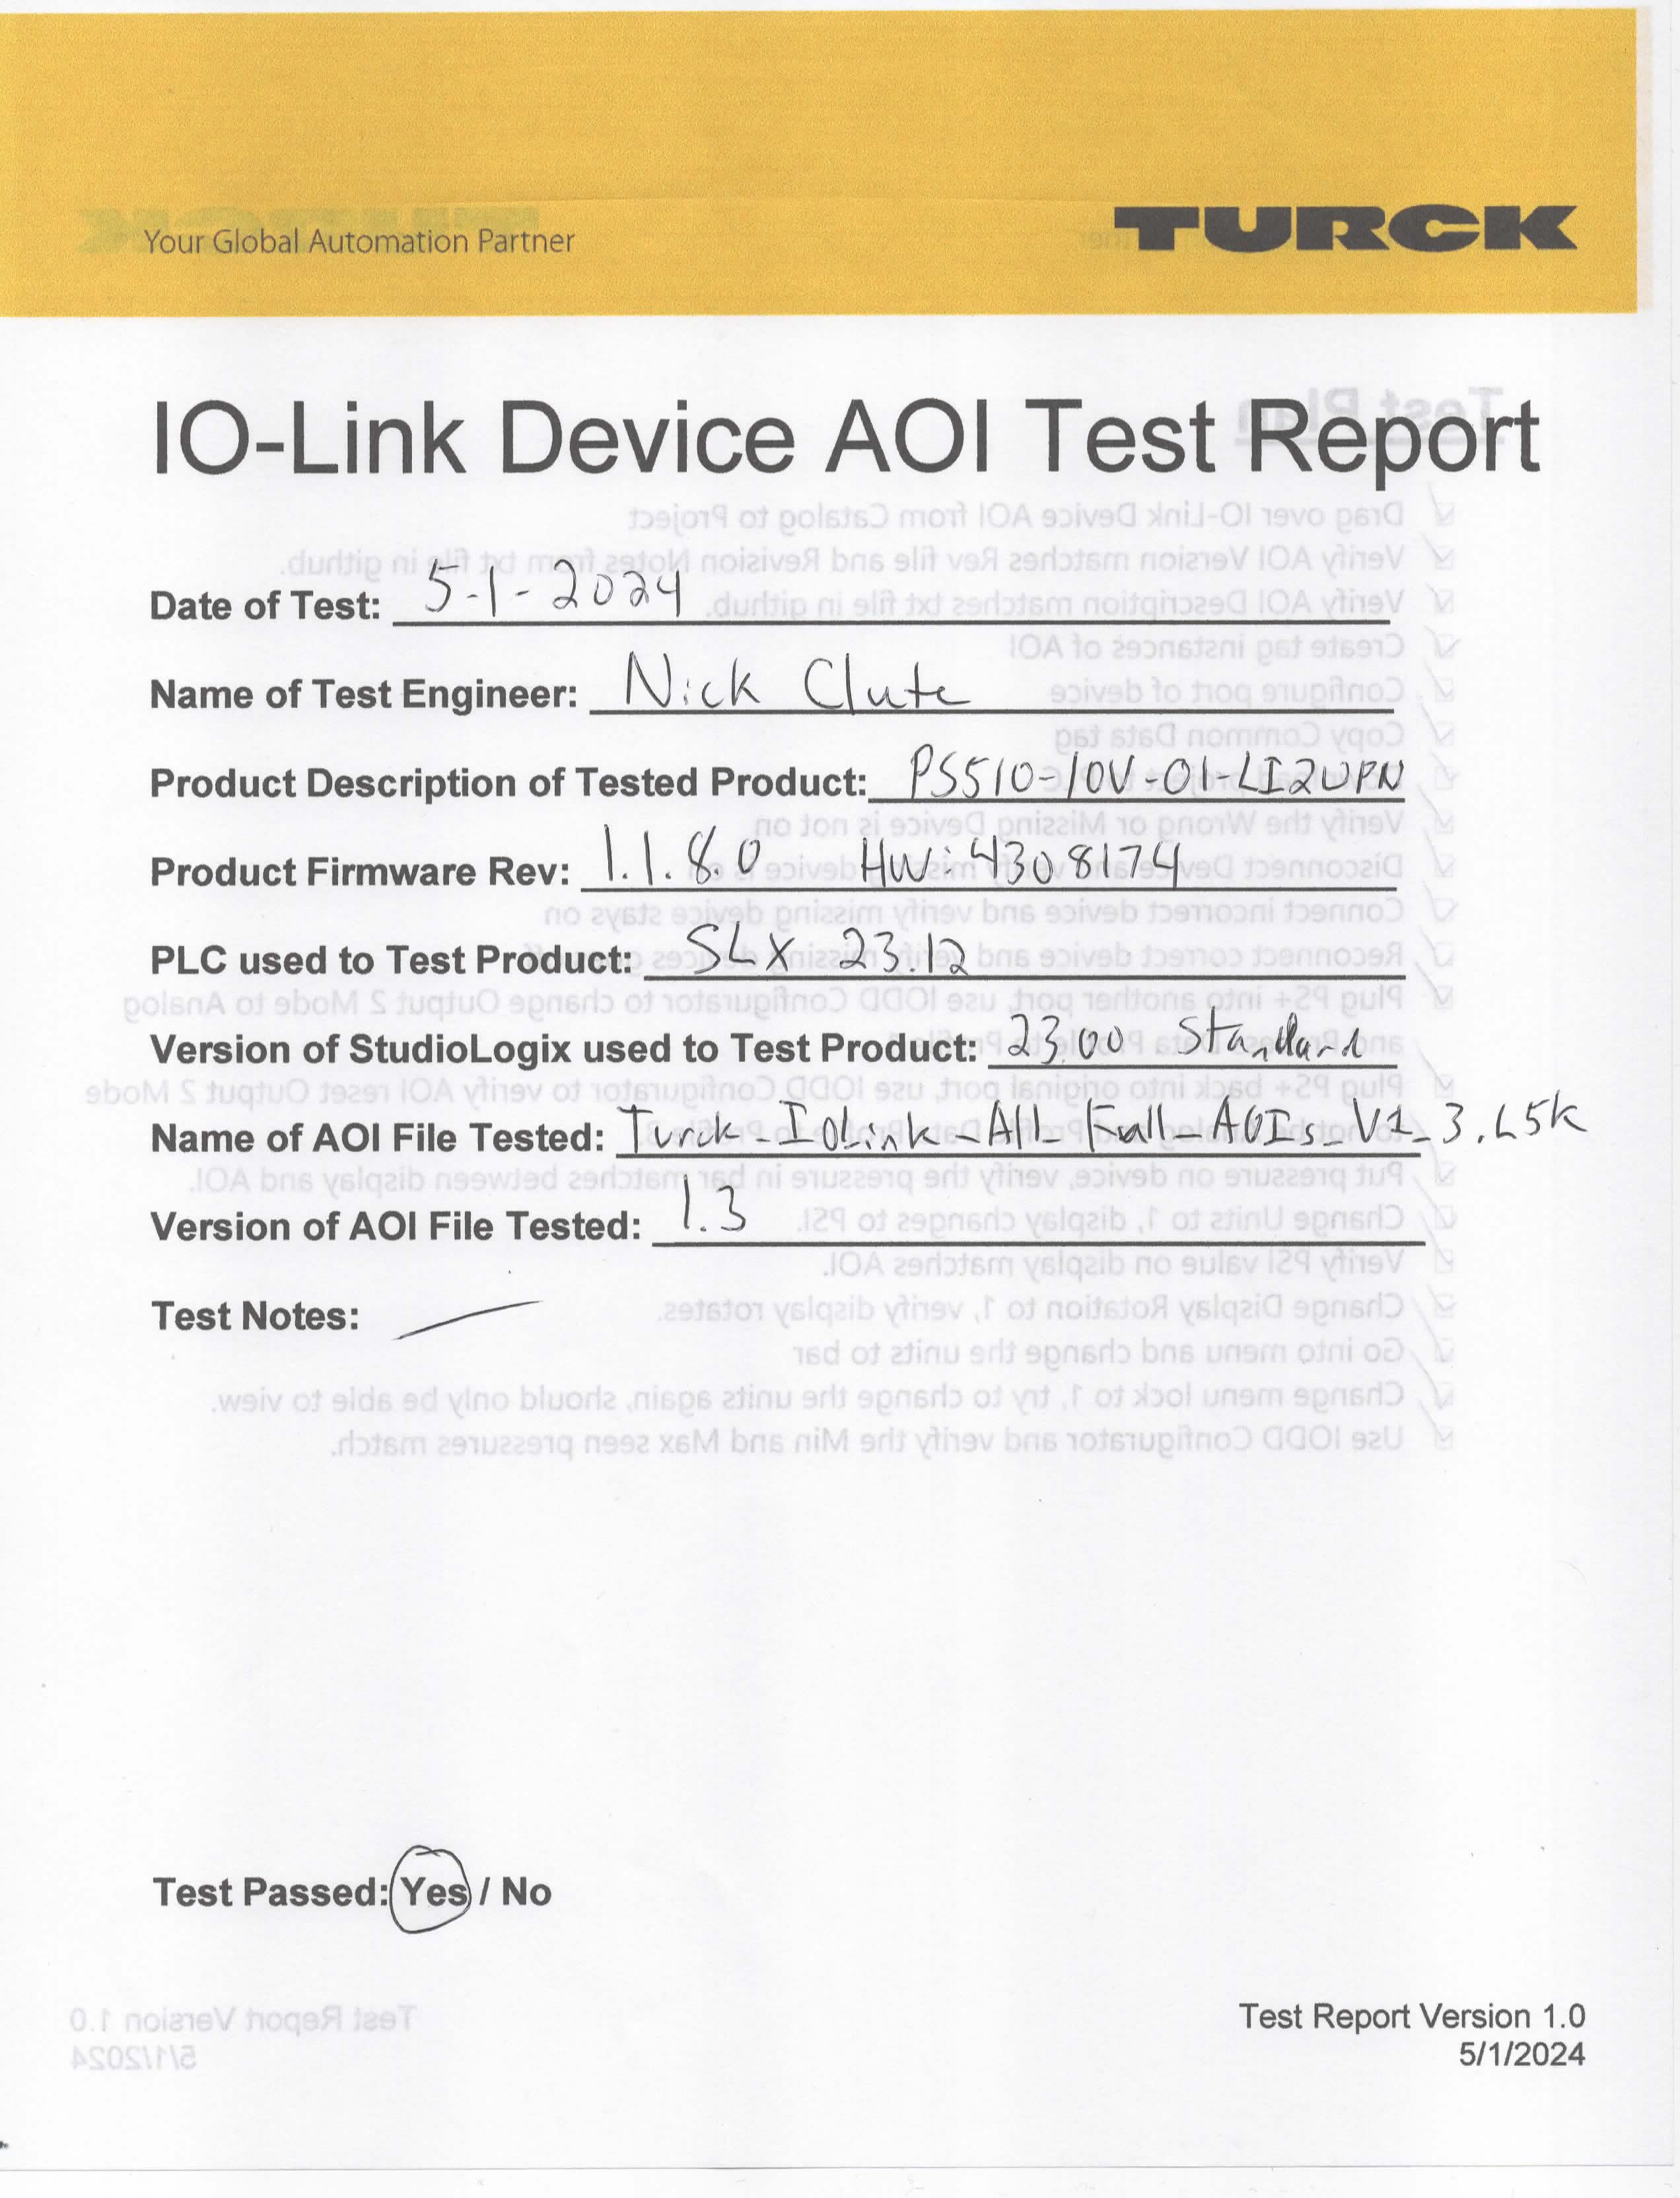 Your Global Automation Partner
TURCK
IO-Link Device AOI Test Report
Date of Test: 5-1-2024
Name of Test Engineer: Nick Clute
Product Description of Tested Product: PS510-10V-01-LI2UPN
Product Firmware Rev: 1.1.8.0 HW: 4308174
PLC used to Test Product: SLX 23.12
Version of StudioLogix used to Test Product: 23.00 Standard
Name of AOI File Tested: Turck_IOLink_All_Full_AOIs_V1_3.L5K
Version of AOI File Tested: 1.3
Test Notes:
Test Passed: Yes / No
Test Report Version 1.0
5/1/2024